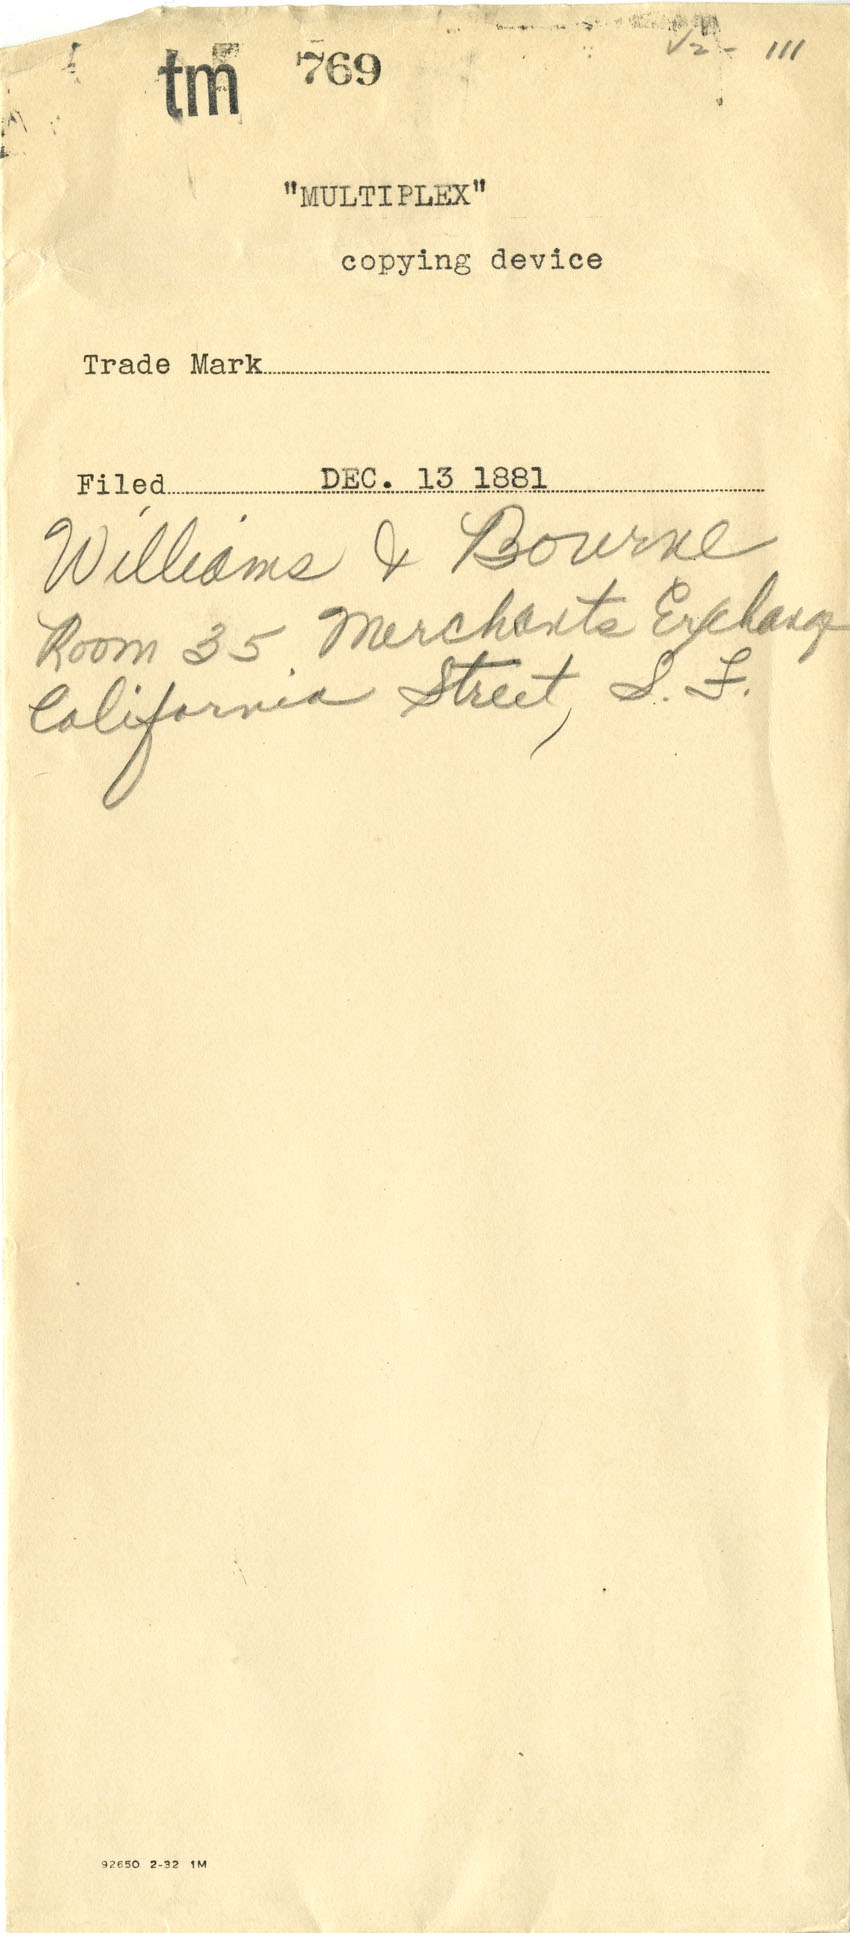 tm 769
"MULTIPLEX"
copying device
Trade Mark
Filed DEC. 13 1881
Williams & Bourne
Room 35 Merchants Exchange
California Street, S. F.
92650 2-32 1M